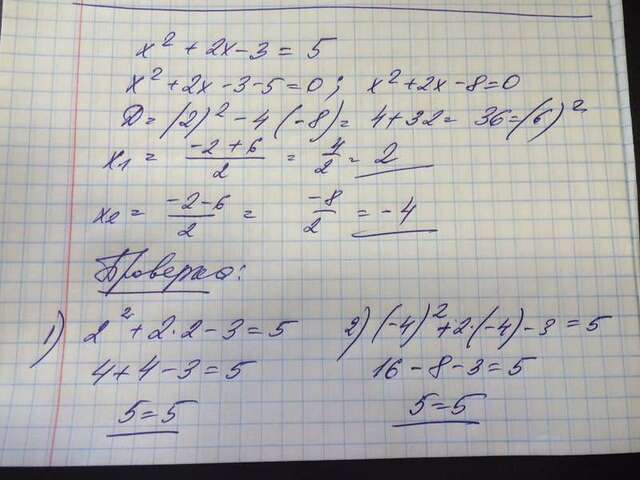 x² + 2x - 3 = 5
x² + 2x - 3 - 5 = 0; x² + 2x - 8 = 0
D = (2)² - 4 (-8) = 4 + 32 = 36 = (6)²
x₁ = (-2 + 6)/2 = 4/2 = 2
x₂ = (-2 - 6)/2 = -8/2 = -4
Проверка:
1) 2² + 2·2 - 3 = 5 2) (-4)² + 2·(-4) - 3 = 5
4 + 4 - 3 = 5 16 - 8 - 3 = 5
5 = 5 5 = 5